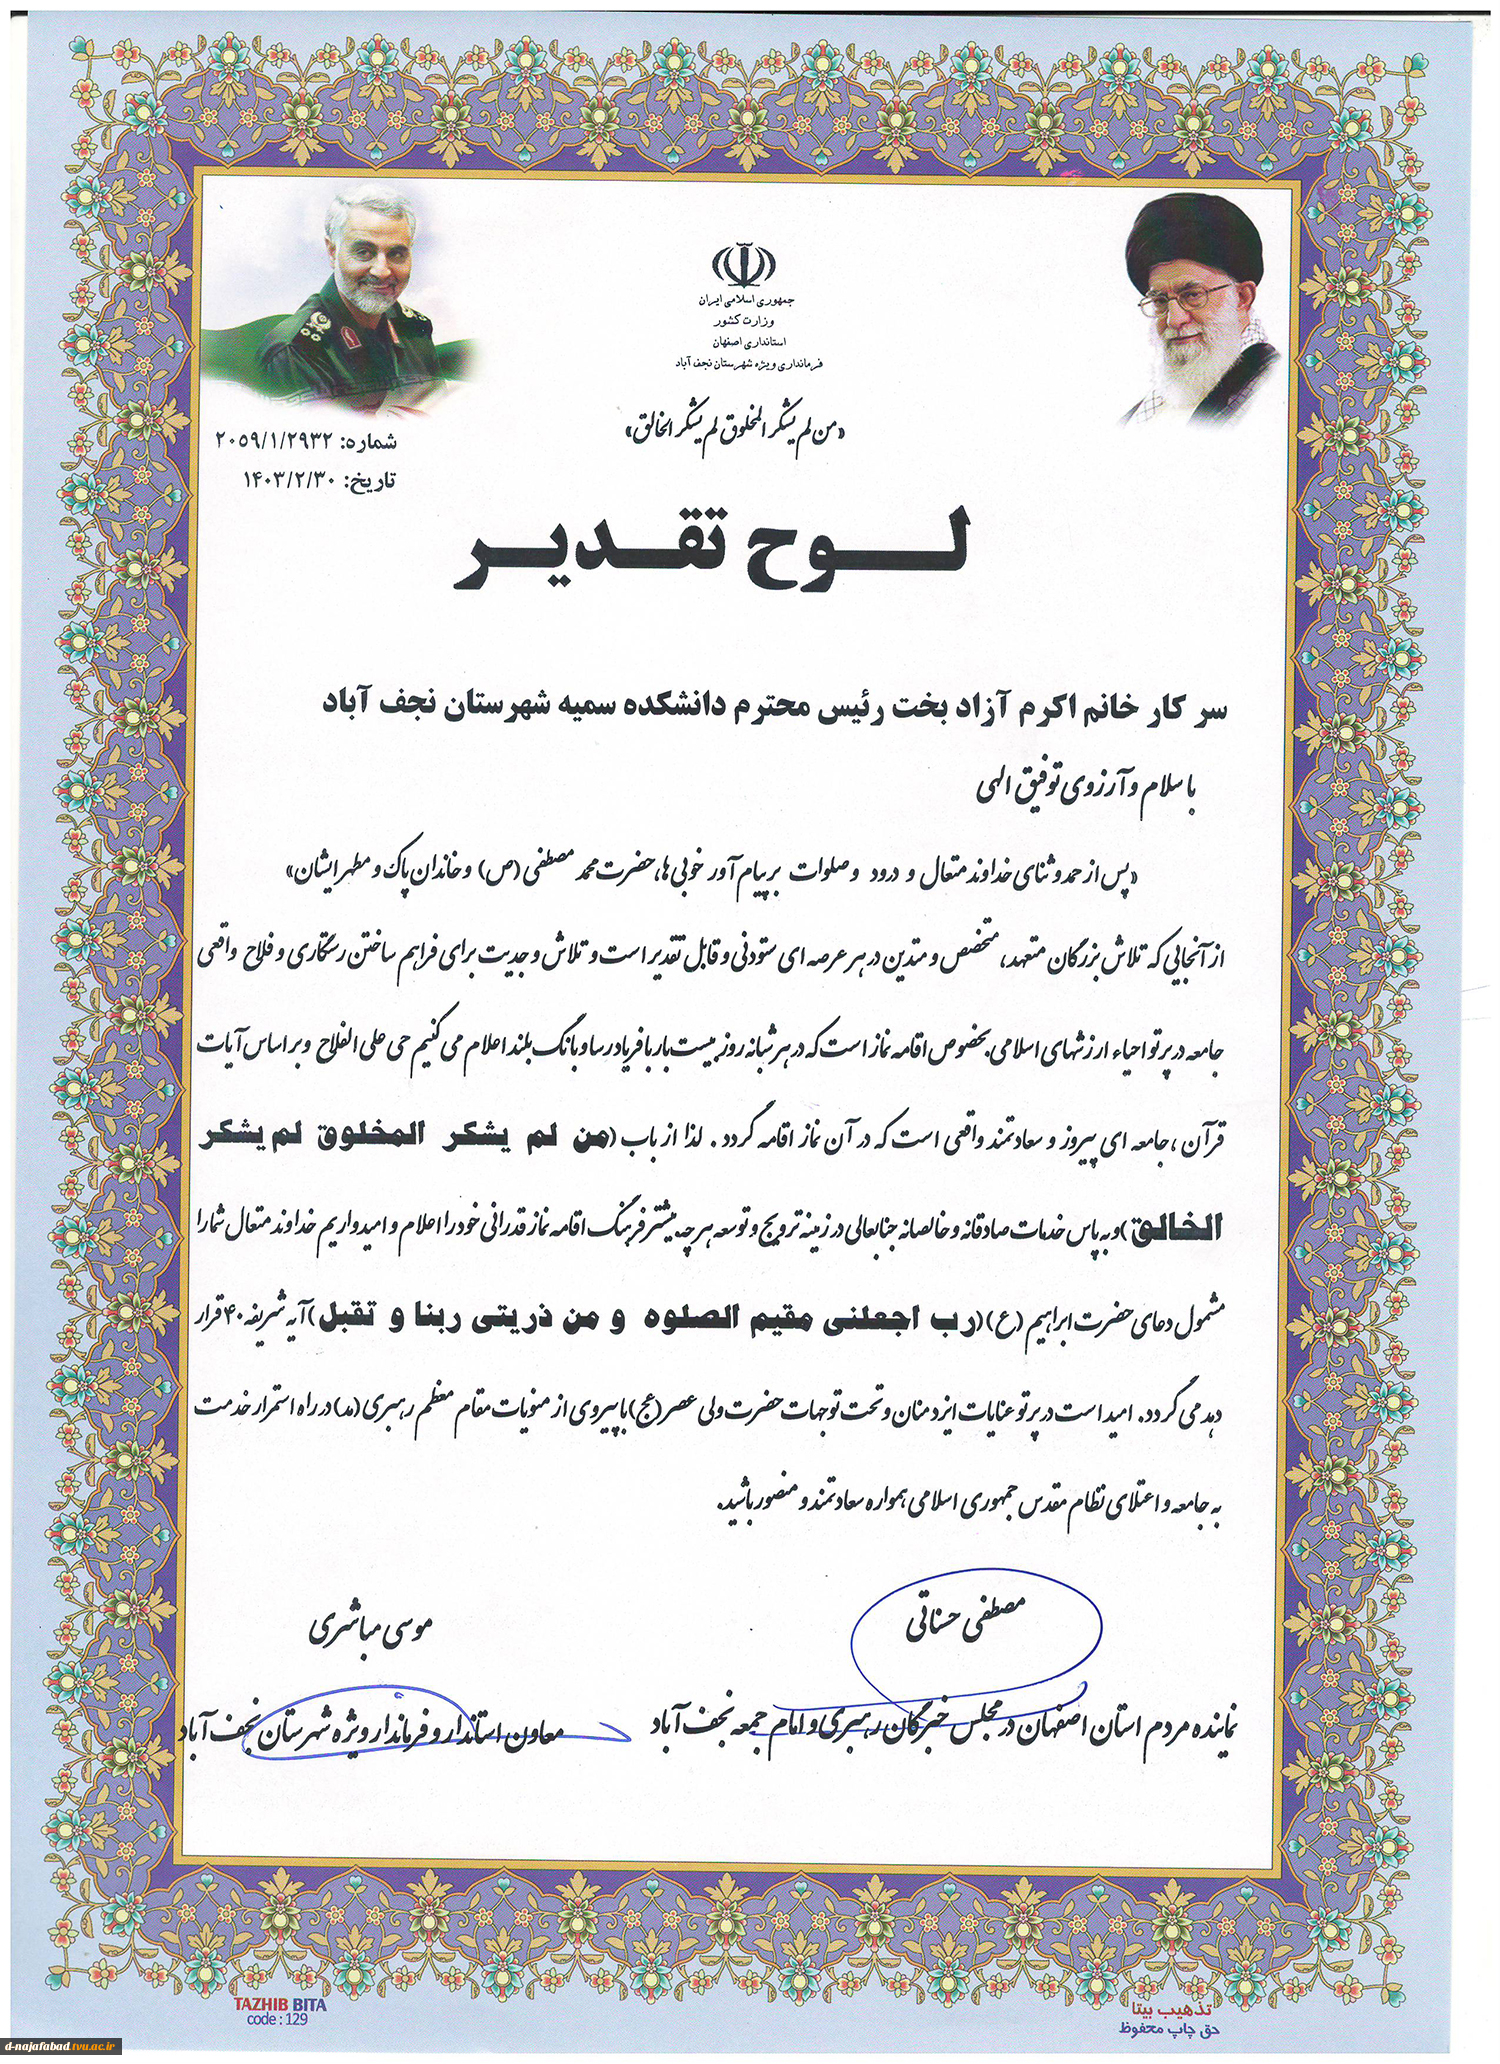 جمهوری اسلامی ایران
وزارت کشور
استانداری اصفهان
فرمانداری ویژه شهرستان نجف آباد
«من لم یشکر المخلوق لم یشکر الخالق»
شماره: ۲۰۵۹/۱/۲۹۳۲
تاریخ: ۱۴۰۳/۲/۳۰
لوح تقدیر
سرکار خانم اکرم آزاد بخت رئیس محترم دانشکده سمیه شهرستان نجف آباد
با سلام و آرزوی توفیق الهی
«پس از حمد و ثنای خداوند متعال و درود و صلوات بر پیام آور خوبی ها، حضرت محمد مصطفی (ص) و خاندان پاک و مطهر ایشان»
از آنجایی که تلاش بزرگان متعهد، متخصص و متدین در هر عرصه ای ستودنی و قابل تقدیر است و تلاش و جدیت برای فراهم ساختن رستگاری و فلاح واقعی
جامعه در پرتو احیاء ارزشهای اسلامی بخصوص اقامه نماز است که در هر شبانه روز بیست بار با فریاد رسا و بانگ بلند اعلام می کنیم حی علی الفلاح و بر اساس آیات
قرآن، جامعه ای پیروز و سعادتمند واقعی است که در آن نماز اقامه گردد. لذا از باب (من لم یشکر المخلوق لم یشکر
الخالق) و به پاس خدمات صادقانه و خالصانه جنابعالی در زمینه ترویج و توسعه هر چه بیشتر فرهنگ اقامه نماز قدرانی خود را اعلام و امیدواریم خداوند متعال شما را
مشمول دعای حضرت ابراهیم (ع) (رب اجعلنی مقیم الصلوه و من ذریتی ربنا و تقبل) آیه شریفه ۴۰ قرار
دهد می گردد. امید است در پرتو عنایات ایزد منان و تحت توجهات حضرت ولی عصر (عج) با پیروی از منویات مقام معظم رهبری (مد) در راه استمرار خدمت
به جامعه و اعتلای نظام مقدس جمهوری اسلامی همواره سعادتمند و منصور باشید.
مصطفی حسناتی
نماینده مردم استان اصفهان در مجلس خبرگان رهبری و امام جمعه نجف آباد
موسی مباشری
معاون استاندار و فرماندار ویژه شهرستان نجف آباد
تذهیب بیتا
حق چاپ محفوظ
TAZHIB BITA
code : 129
d-najafabad.tvu.ac.ir